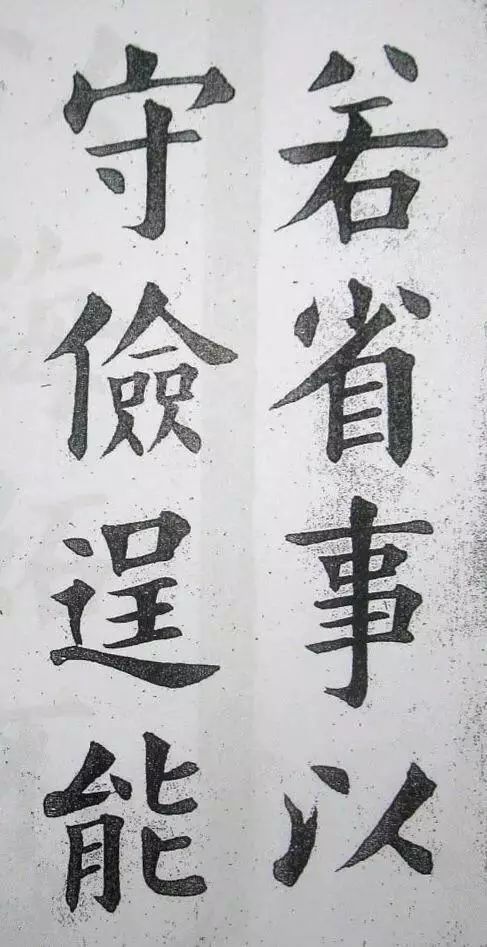 若省事以
守儉逞能